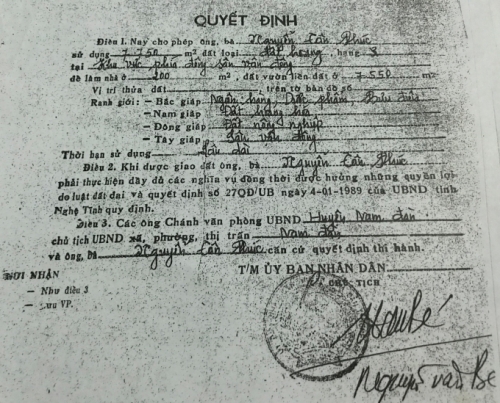 QUYẾT ĐỊNH
Điều 1. Nay cho phép ông, bà Nguyễn Cẩn Phúc
sử dụng 7.750 m² đất loại đất hoang, hạng 8
tại Khu vực phía đông sân vận động
để làm nhà ở 200 m², đất vườn liền đất ở 7550 m²
Vị trí thửa đất trên tờ bản đồ số
Ranh giới: – Bắc giáp Ngân hàng, Dược phẩm, Bưu điện
– Nam giáp Đất hàng hóa
– Đông giáp Đất nông nghiệp
– Tây giáp Sân vận động
Thời hạn sử dụng Lâu dài
Điều 2. Khi được giao đất ông, bà Nguyễn Cẩn Phúc
phải thực hiện đầy đủ các nghĩa vụ đồng thời được hưởng những quyền lợi
do luật đất đai và quyết định số 27QĐ/UB ngày 4-01-1989 của UBND tỉnh
Nghệ Tĩnh quy định.
Điều 3. Các ông Chánh văn phòng UBND Huyện Nam Đàn
chủ tịch UBND xã, phường, thị trấn Nam Đàn
và ông, bà Nguyễn Cẩn Phúc căn cứ quyết định thi hành.
NƠI NHẬN
T/M ỦY BAN NHÂN DÂN
– Như điều 3
CHỦ TỊCH
– Lưu VP.
Nguyễn Văn Bé